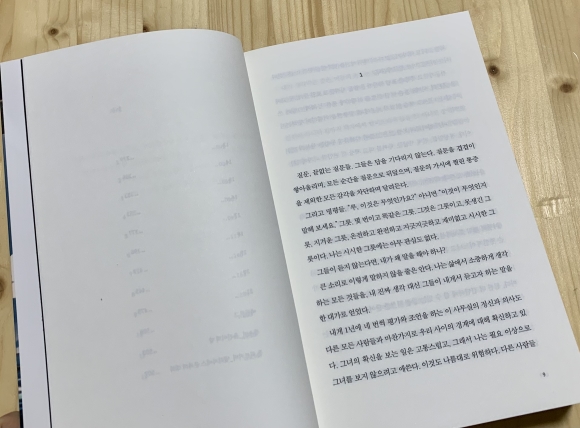 1
질문, 끝없는 질문들. 그들은 답을 기다리지 않는다. 질문을 겹겹이
쌓아올리며, 모든 순간을 질문으로 뒤덮으며, 질문의 가시에 찔린 통증
을 제외한 모든 감각을 차단하며 달려든다.
그리고 명령들. "루, 이것은 무엇인가요?" 아니면 "이것이 무엇인지
말해 보세요." 그릇. 몇 번이고 똑같은 그릇. 그것은 그릇이고, 못생긴 그
릇, 지겨운 그릇, 온전하고 완전하고 지긋지긋하고 재미없고 시시한 그
릇이다. 나는 시시한 그릇에는 아무 관심도 없다.
그들이 듣지 않는다면, 내가 왜 말을 해야 하나?
큰 소리로 이렇게 말하지 않을 줄은 안다. 나는 삶에서 소중하게 생각
하는 모든 것들을, 내 진짜 생각 대신 그들이 내게서 듣고자 하는 말을
한 대가로 얻었다.
내게 1년에 네 번씩 평가와 조언을 하는 이 사무실의 정신과 의사도
다른 모든 사람들과 마찬가지로 우리 사이의 경계에 대해 확신하고 있
다. 그녀의 확신을 보는 일은 고통스럽고, 그래서 나는 필요 이상으로
그녀를 보지 않으려고 애쓴다. 이것도 나름대로 위험하다. 다른 사람들
9